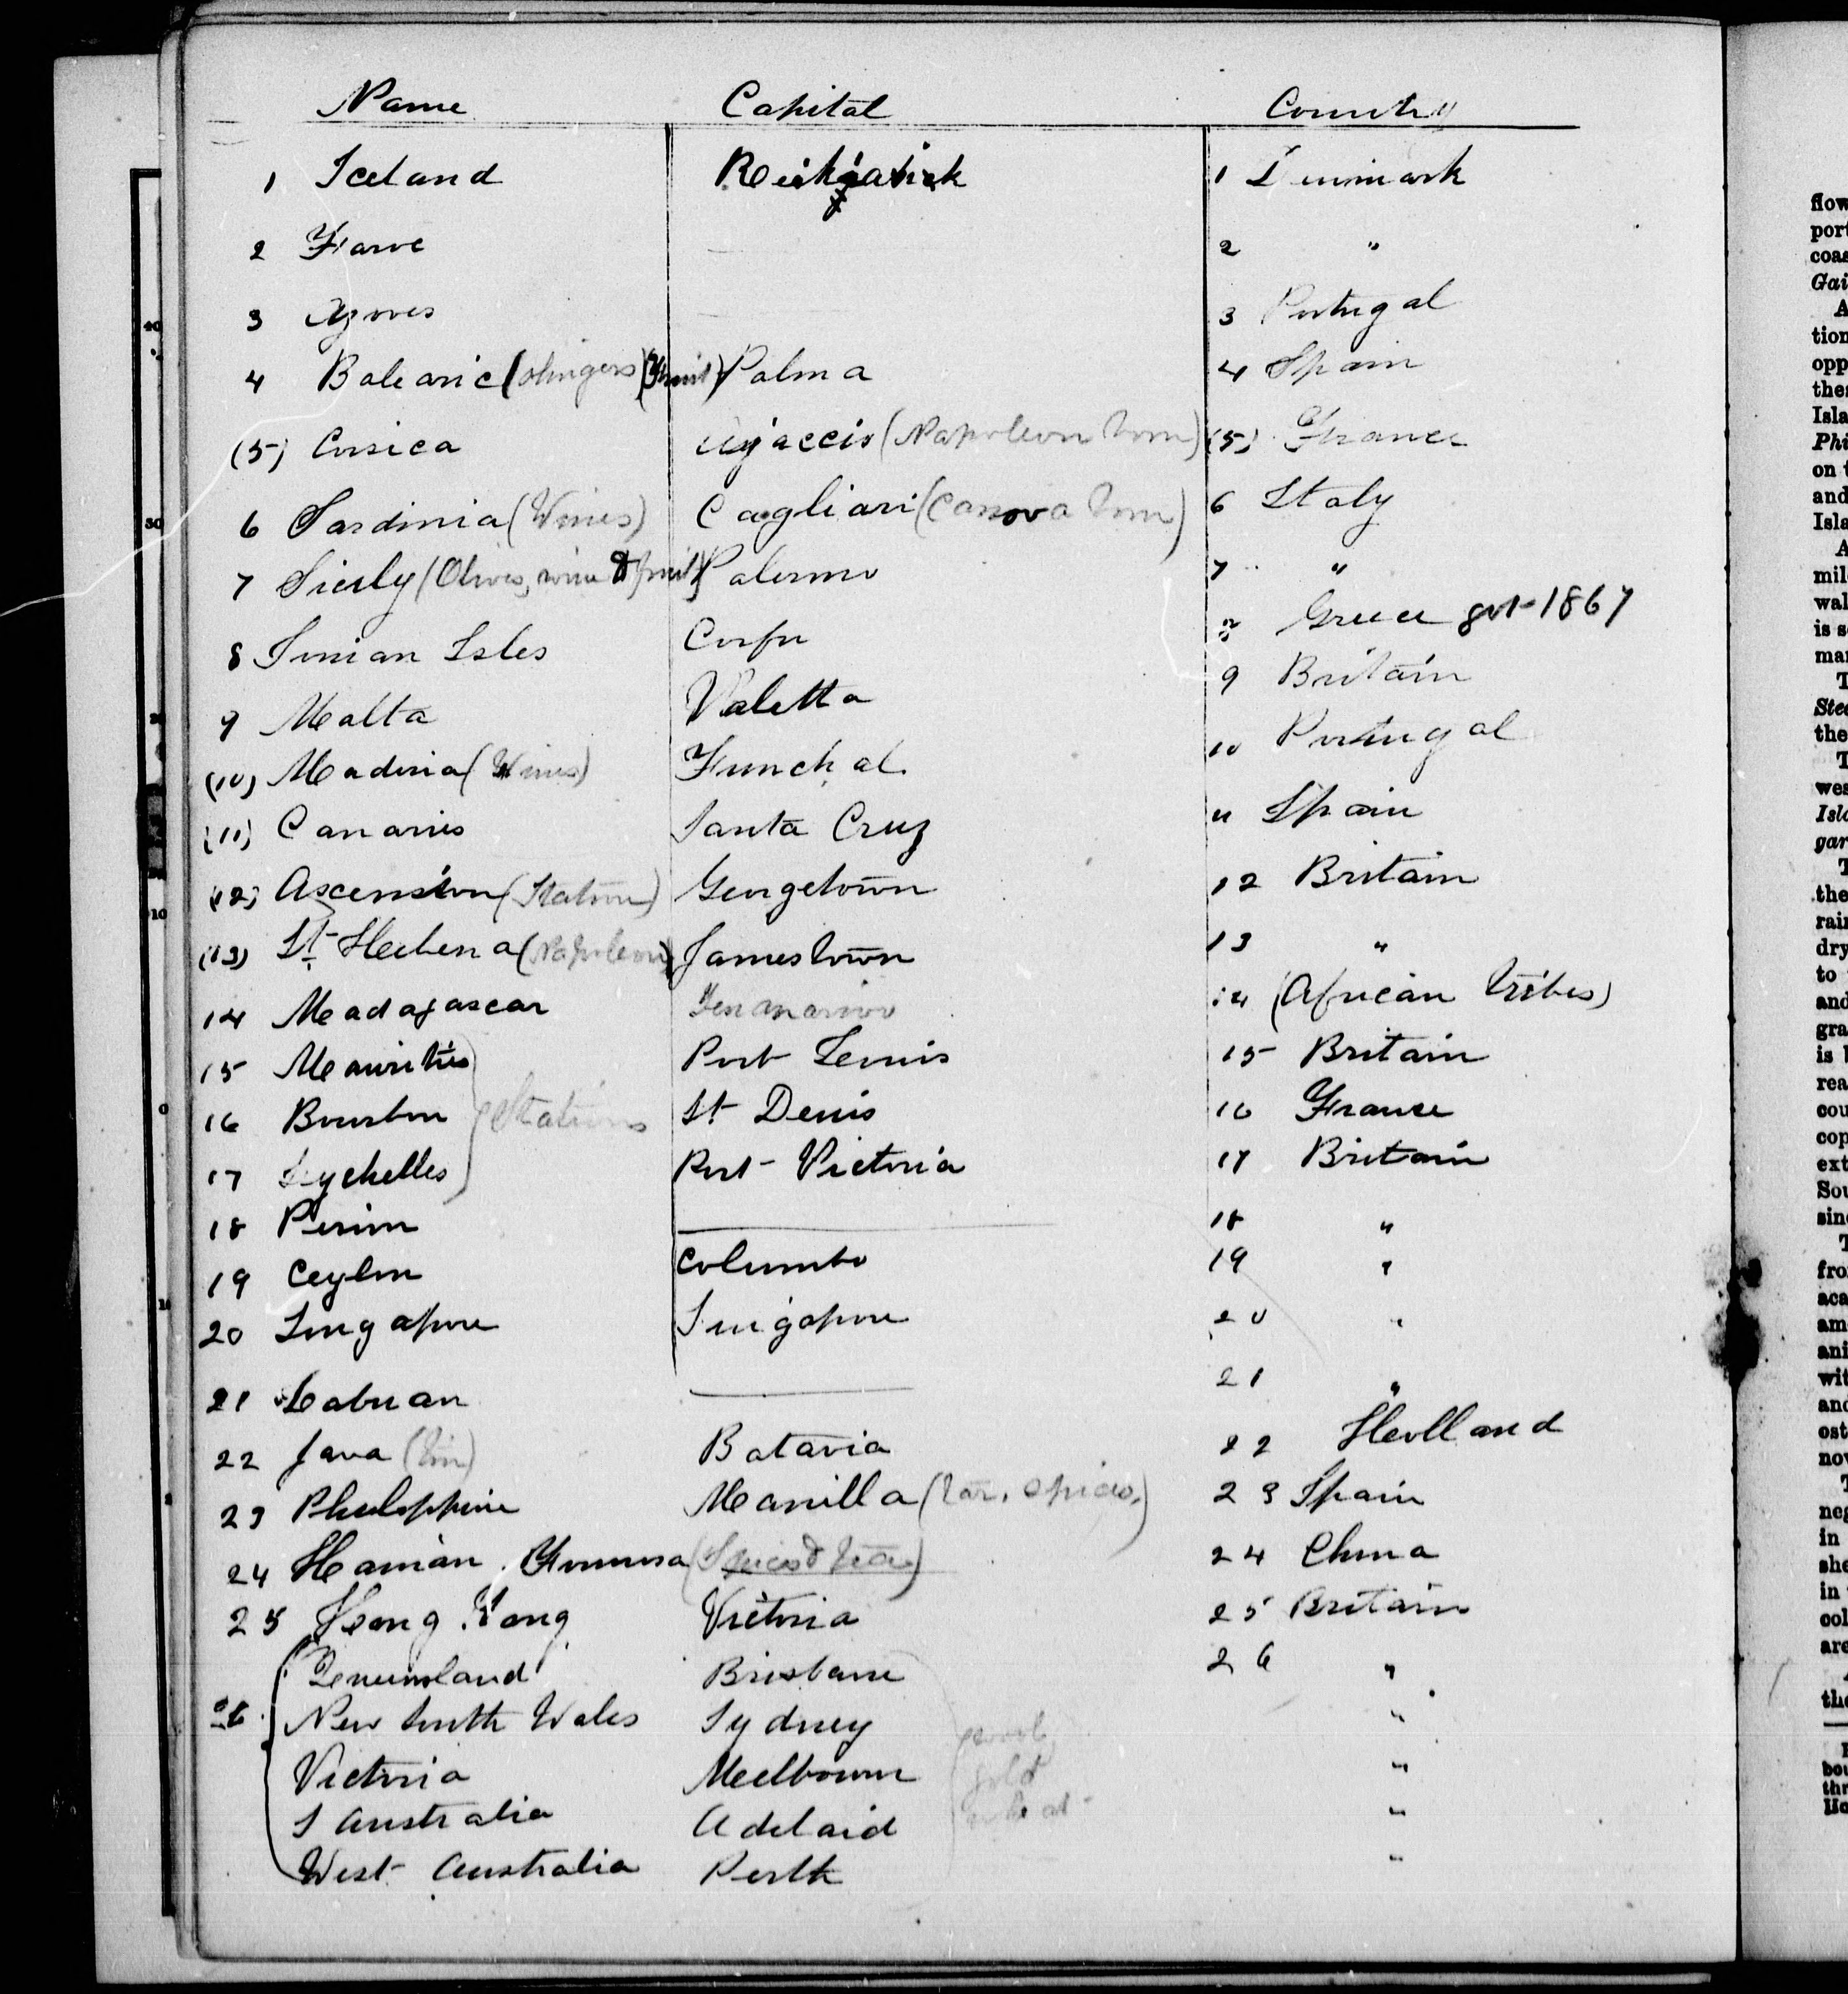 Name Capital Country
1 Iceland Reikjavick 1 Denmark
2 Faroe 2 "
3 Azores 3 Portugal
4 Balearic (slingers) (Fruit) Palma 4 Spain
(5) Corsica Ajaccio (Napoleon born) (5) France
6 Sardinia (Wines) Cagliari (Canova born) 6 Italy
7 Sicily (Olives, wine & fruit) Palermo 7 "
8 Ionian Isles Corfu 8 Greece got 1867
9 Malta Valetta 9 Britain
(10) Maderia (Wines) Funchal 10 Portugal
(11) Canaries Santa Cruz 11 Spain
(12) Ascension (Station) Georgetown 12 Britain
(13) St. Helena (Napoleon) Jamestown 13 "
14 Madagascar Tenanarivo 14 (African tribes)
15 Mauritius Port Louis 15 Britain
16 Bourbon Stations St Denis 16 France
17 Seychelles Port Victoria 17 Britain
18 Perim 18 "
19 Ceylon Columbo 19 "
20 Singapore Singapore 20 "
21 Labuan 21 "
22 Java (tin) Batavia 22 Holland
23 Philippine Manilla (tar, spices,) 23 Spain
24 Hainan. Formosa (Spices & tea) 24 China
25 Hong Kong Victoria 25 Britain
Queensland Brisbane 26 "
26 New South Wales Sydney wool "
Victoria Melbourne gold "
S Australia Adelaid wheat "
West Australia Perth "
flow
port
coas
Gai
A
tion
opp
thes
Isla
Phi
on t
and
Isla
A
mil
wal
is s
mar
T
Stee
the
T
wes
Isla
gar
T
the
rain
dry
to
and
gra
is
rea
cou
cop
ext
Sou
sin
T
fro
aca
am
ani
wit
and
ost
nov
T
neg
in
she
in
col
are
the
bou
thr